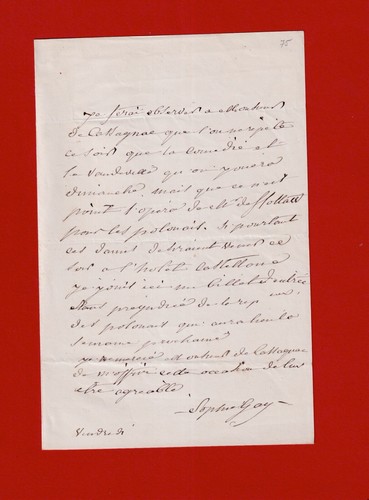 75
je ferai observer a Monsieur
de Cassagnac que l'on ne répète
ce soir que la comédie et
le vaudeville qu'on jouera
dimanche mais que ce n'est
point l'opéra de Mr de flottow
pour les polonais. Si pourtant
ces dames desiraient venir ce
soir a l'hotel Castellane
je joins ici un billet d'entrée
sans prejudice de la rep on
des polonais qui aura lieu la
semaine prochaine
je remercie Monsieur de Cassagnac
de m'offrir cette occasion de leur
etre agréable
Sophie Gay
Vendredi